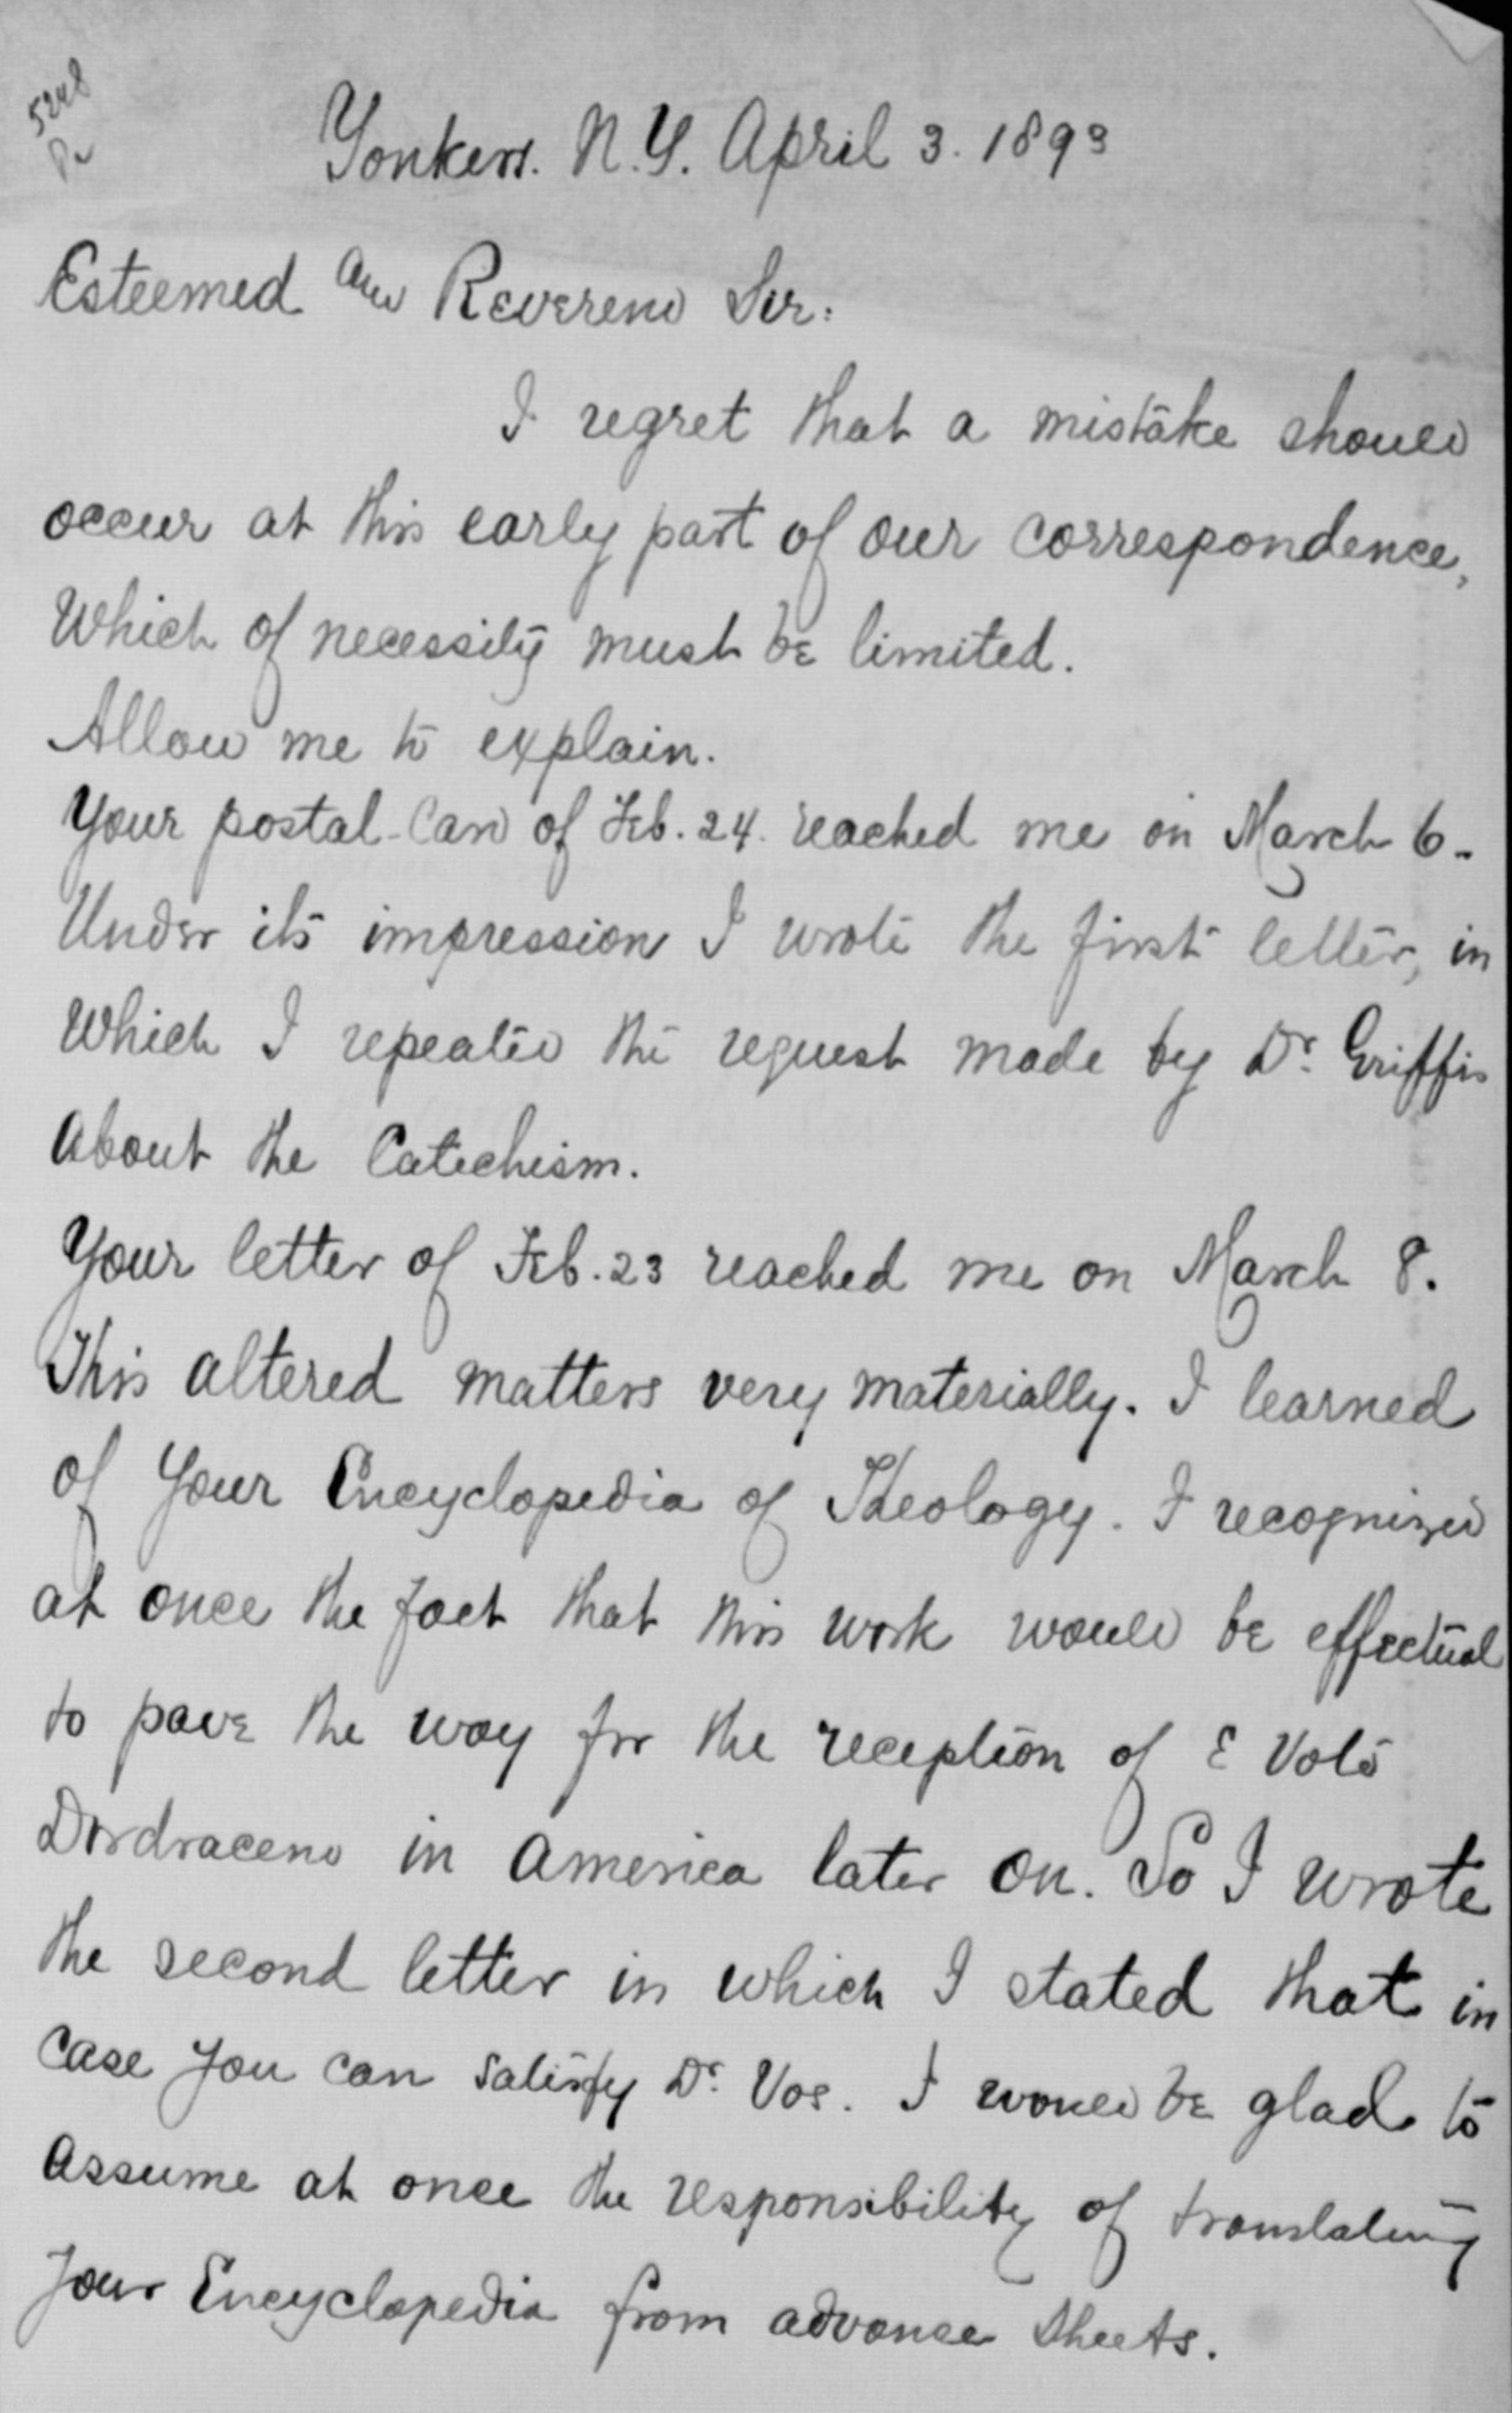 5248
Yonkers. N.Y. April 3. 1893
Esteemed and Reverend Sir:
I regret that a mistake should
occur at this early part of our correspondence,
Which of necessity must be limited.
Allow me to explain.
Your postal-Card of Feb. 24. reached me on March 6.
Under its impression I wrote the first letter, in
Which I repeated the request made by Dr. Griffis
About the Catechism.
Your letter of Feb. 23 reached me on March 8.
This altered matters very materially. I learned
of Your Encyclopedia of Theology. I recognized
at once the fact that this work would be effectual
to pave the way for the reception of E Voto
Dordraceno in America later on. So I wrote
the second letter in which I stated that in
Case you can satisfy Dr. Vos. I would be glad to
Assume at once the responsibility of translating
Your Encyclopedia from advance sheets.